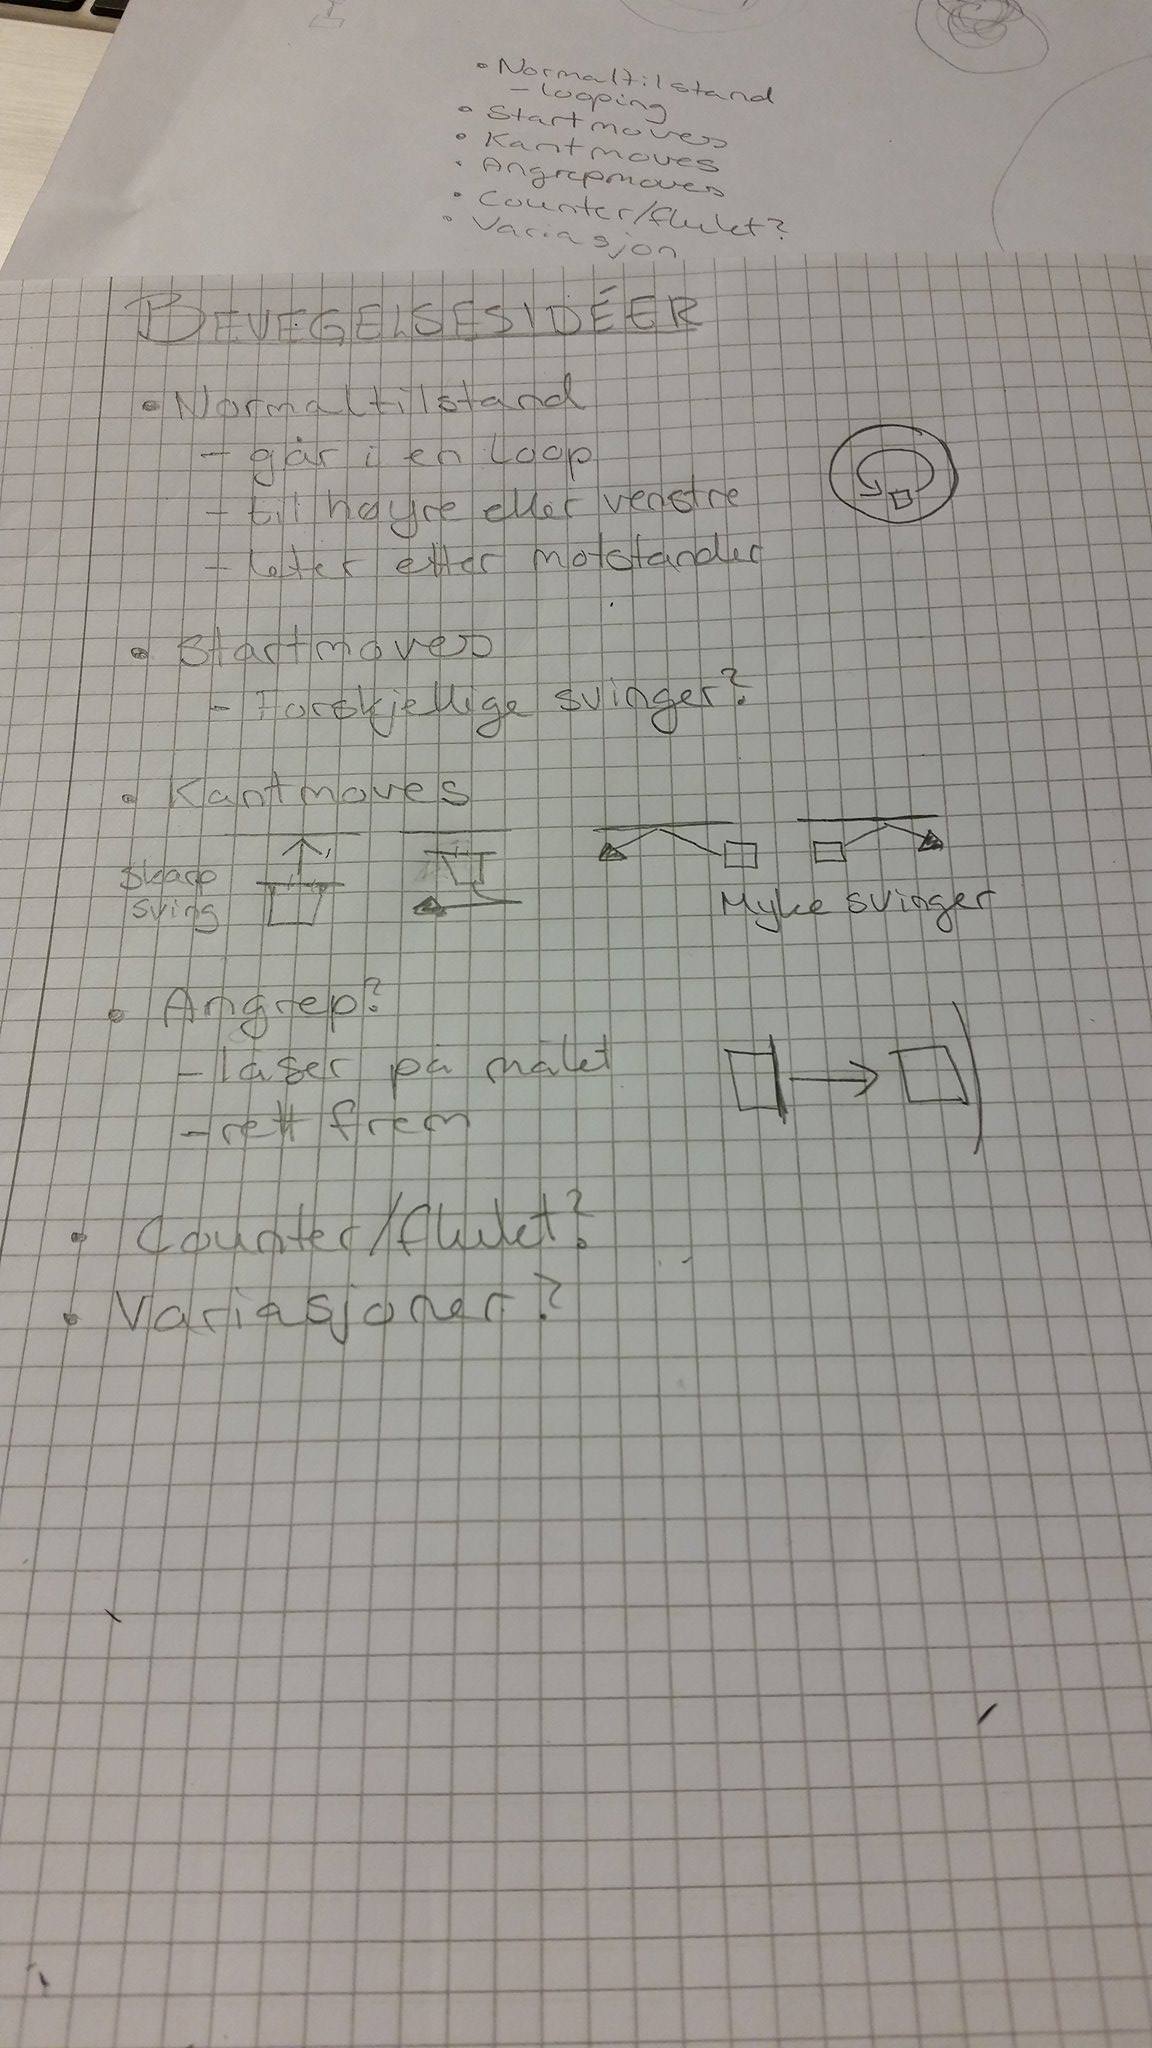 • Normaltilstand
- looping
• Startmoves
• Kantmoves
• Angrepmoves
• Counter/flukt?
• Variasjon
BEVEGELSESIDÉER
• Normaltilstand
- går i en loop
- til høyre eller venstre
- leter etter motstander
• Startmoves
- Forskjellige svinger?
• Kantmoves
Skarp
sving
Myke svinger
• Angrep?
- låser på målet
- rett frem
• Counter/flukt?
• Variasjoner?